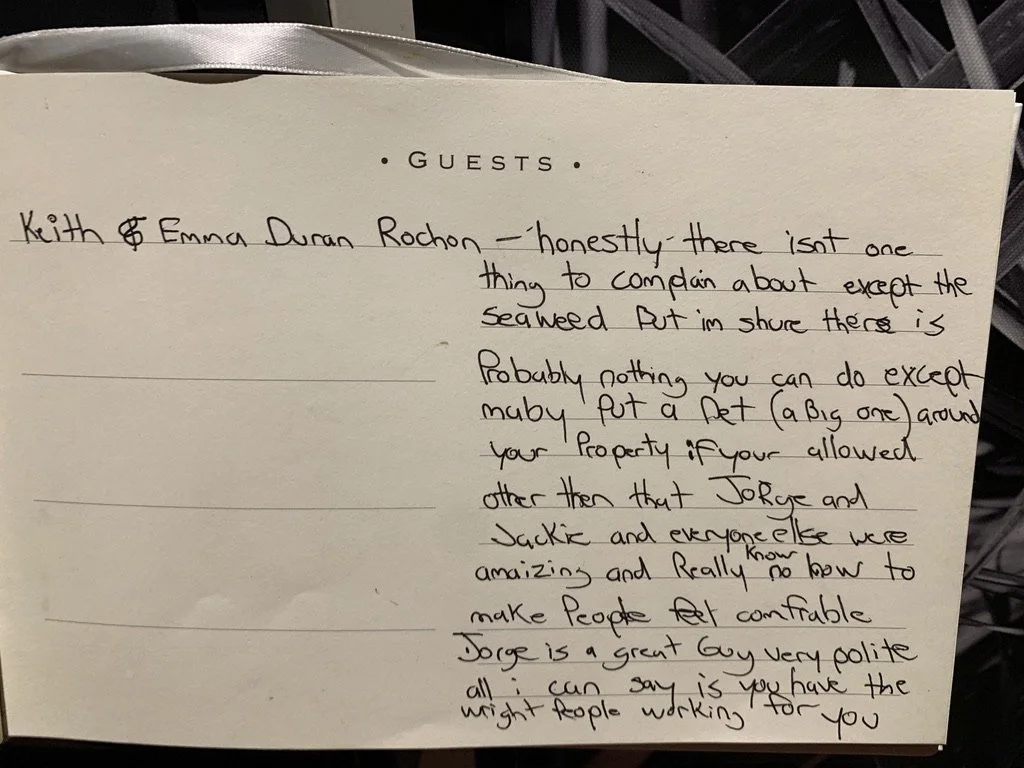 • GUESTS •
Keith & Emma Duran Rochon - honestly there isnt one
thing to complain about except the
seaweed But im shure there is
Probably nothing you can do except
maby Put a net (a Big one) around
your Property if your allowed
other then that Jorge and
Jackie and everyone else were
amaizing and Really know how to
make People feel comfrable
Jorge is a great Guy very polite
all i can say is you have the
wright People working for you